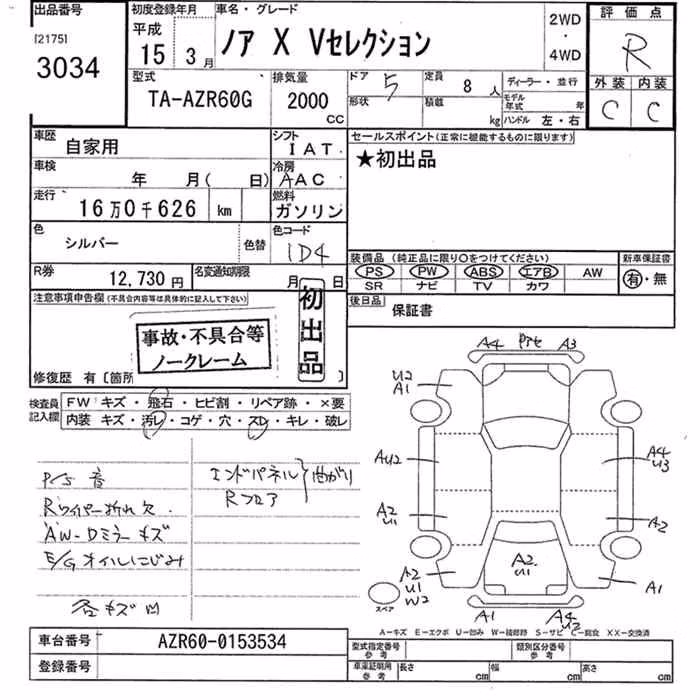 出品番号
[2175]
3034
初度登録年月
平成
15 3月
車名・グレード
ノア X Vセレクション
2WD
・
4WD
評価点
R
外装 内装
C C
型式
TA-AZR60G
排気量
2000
CC
ドア 5
形状
定員 8 人
積載 kg
ディーラー・並行
モデル年式 年
ハンドル 左・右
車歴
自家用
シフト
IAT
車検
年 月( 日)
冷房
AAC
走行
16万0千626 km
燃料
ガソリン
色
シルバー
色替
色コード
1D4
R券
12,730 円
名変通知期限
月 日
セールスポイント(正常に機能するものに限ります)
★初出品
装備品 (純正品に限り〇をつけてください)
PS PW ABS エアB AW
SR ナビ TV カワ
新車保証書
有・無
後日品
保証書
注意事項申告欄(不具合内容等は具体的に記入して下さい)
事故・不具合等
ノークレーム
初出品
修復歴 有〔箇所 〕
検査員
記入欄
FW キズ・飛石・ヒビ割・リペア跡・×要
内装 キズ・汚レ・コゲ・穴・スレ・キレ・破レ
P/S 音
Rワイパー折れ欠
AW-Dミラーキズ
E/Gオイルにじみ
各キズ凹
エンドパネル
Rフロア
曲がり
A4 A3
U2
A1
AU2
A4
U3
A2
U1
A2
A2
U1
A2
U1
W2
A1
A1
A4
U2
スペア
A−キズ E−エクボ U−凹み W−補修跡 S−サビ C−腐食 XX−交換済
車台番号
AZR60-0153534
登録番号
型式指定番号
参考
類別区分番号
参考
車庫証明用
参考
長さ cm
幅 cm
高さ cm